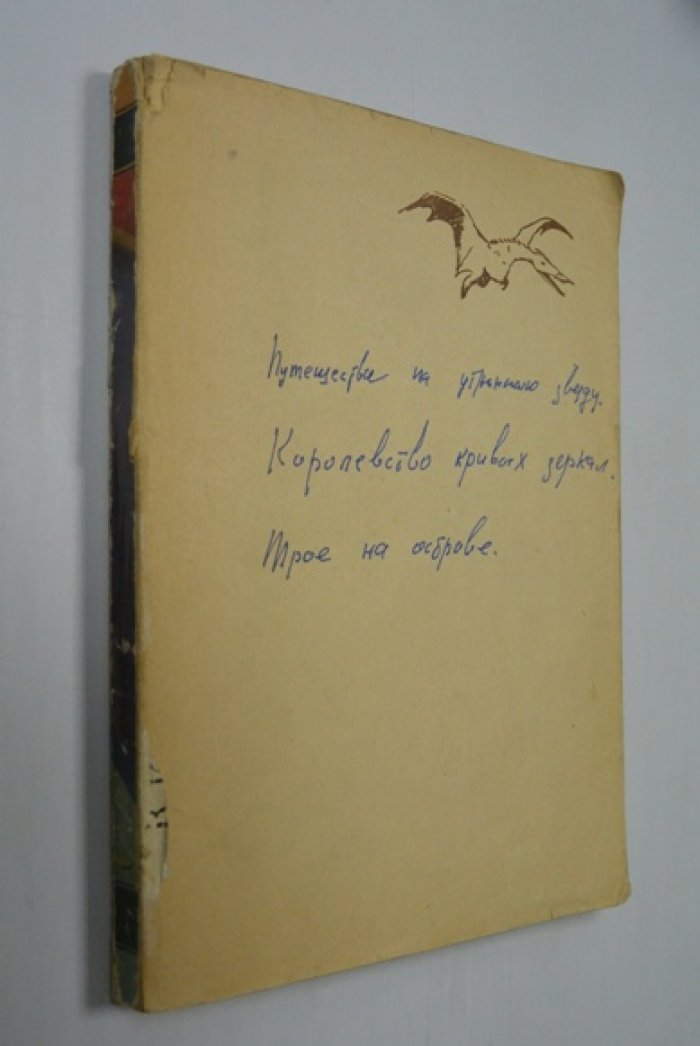 Путешествие на утреннюю звезду.
Королевство кривых зеркал.
Трое на острове.